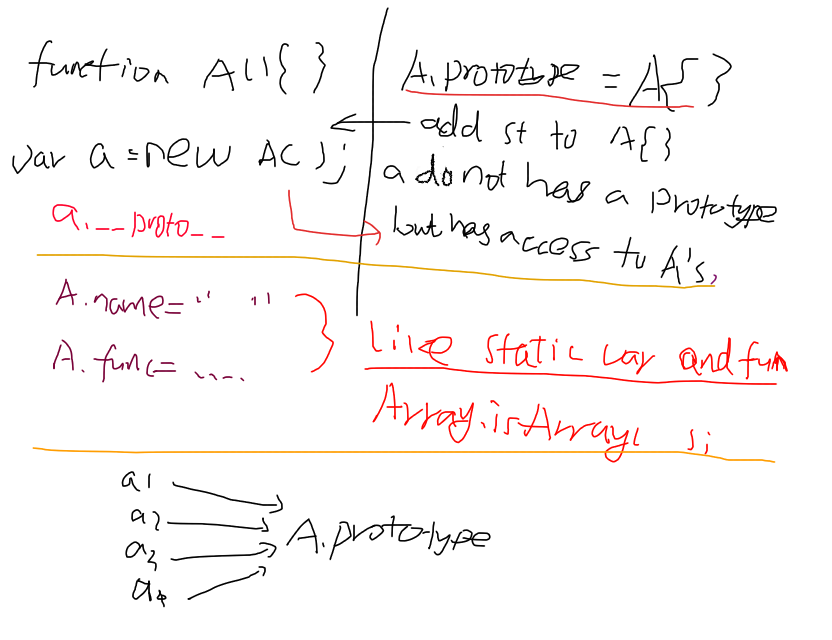 function A(){ }
var a = new A( );
a.__proto__
A.prototype = A{ }
add st to A{ }
a do not has a prototype
but has access to A's,
A.name= " "
A.func= .....
like static var and fun
Array.isArray( );
a1
a2
a3
a4
A.prototype